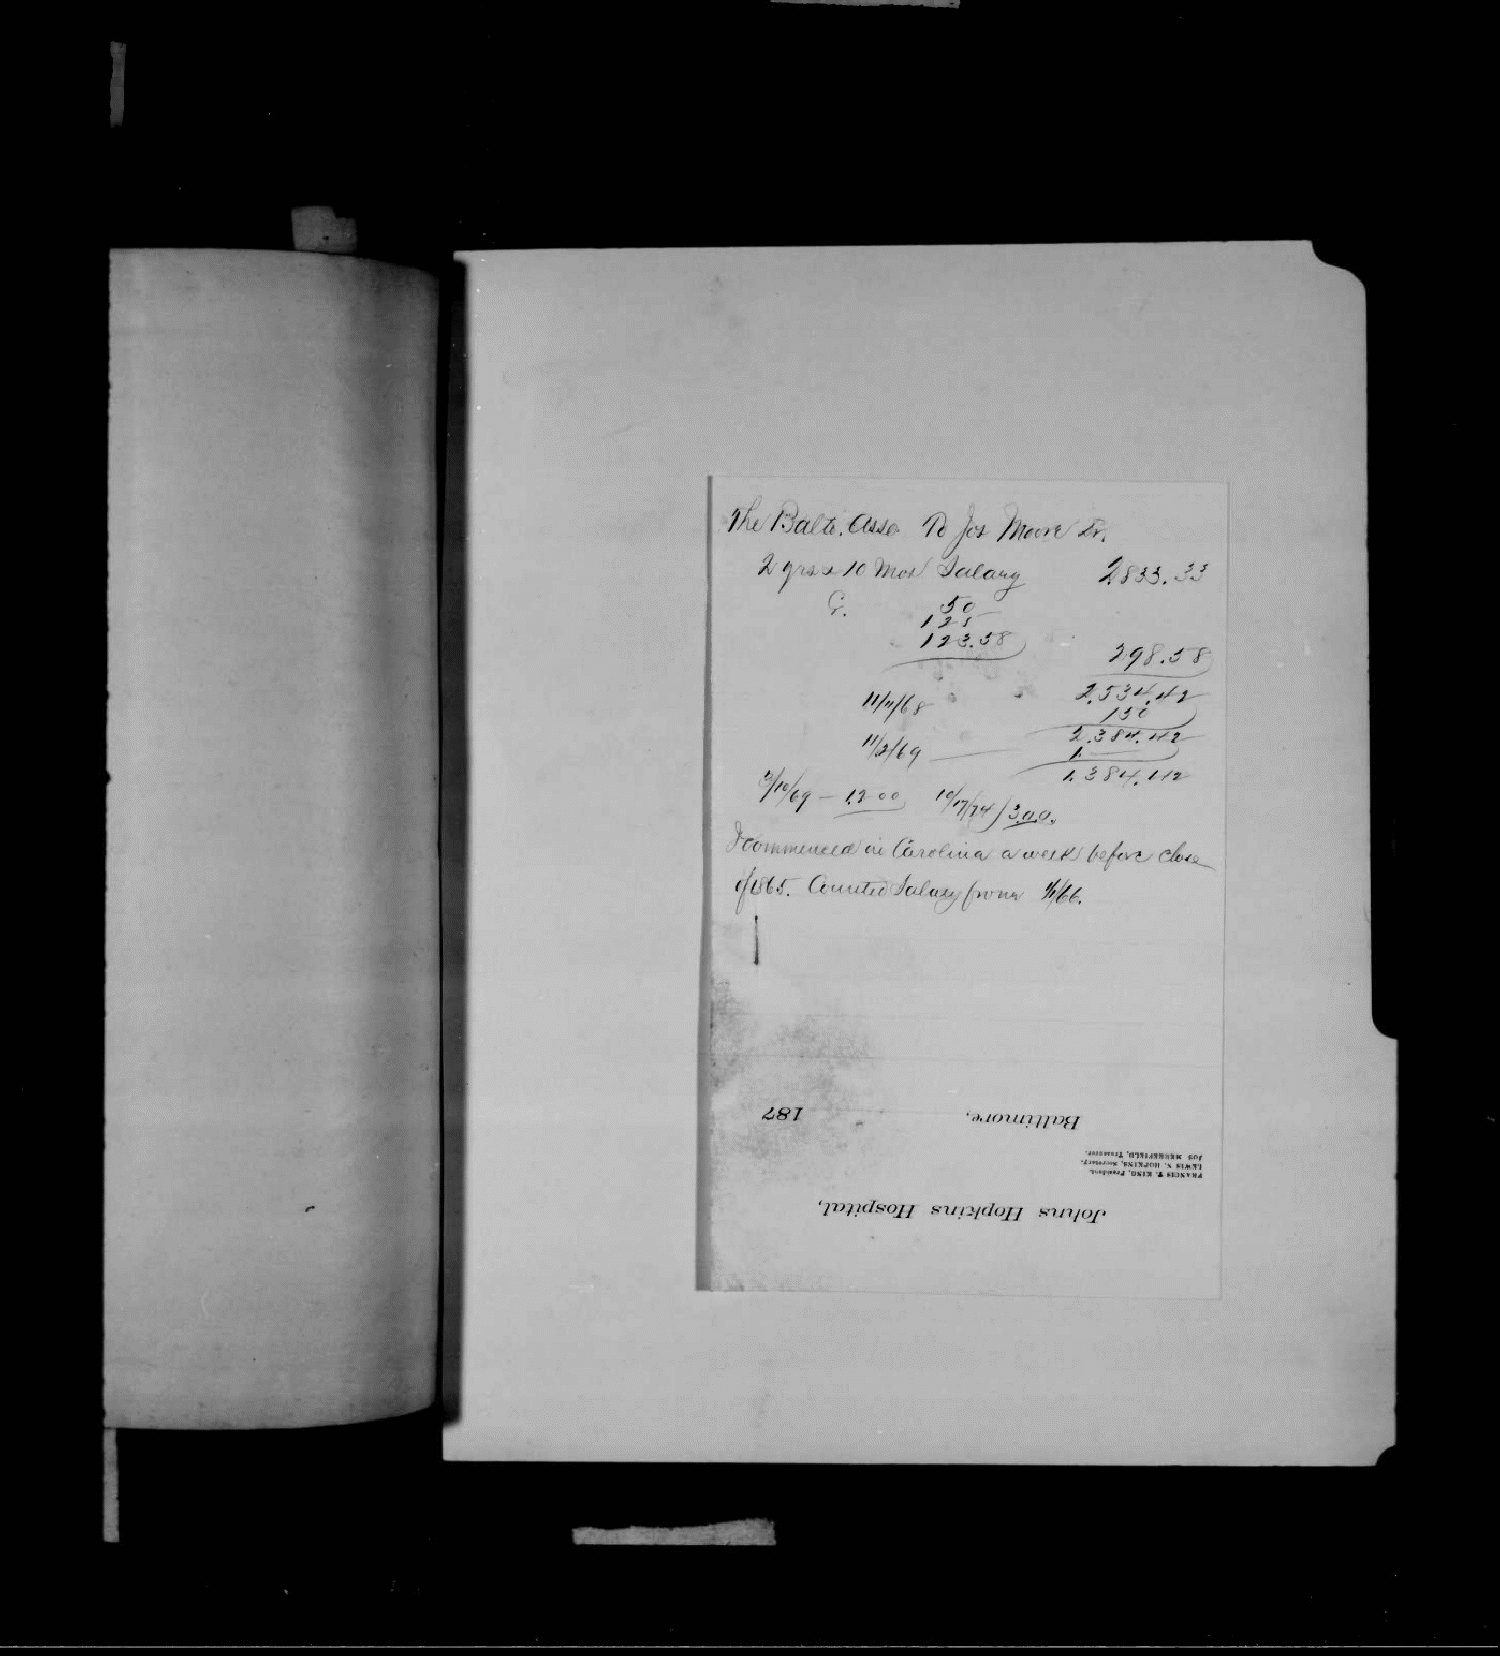 The Balto. Asso To Jos Moore Dr.
2 yrs & 10 Mos Salary 2833.33
C. 50
125
123.58 298.58
11/11/68 2,534.42
150
11/2/69 — 2,384.42
1.
1.384.42
3/10/69 — 1200 10/17/74) 300.
I commenced in Carolina a week before close
of 1865. Counted Salary from 1/1/66.
Johns Hopkins Hospital,
FRANCIS T. KING, President.
LEWIS N. HOPKINS, Secretary.
JOS MERREFIELD, Treasurer.
Baltimore, 187